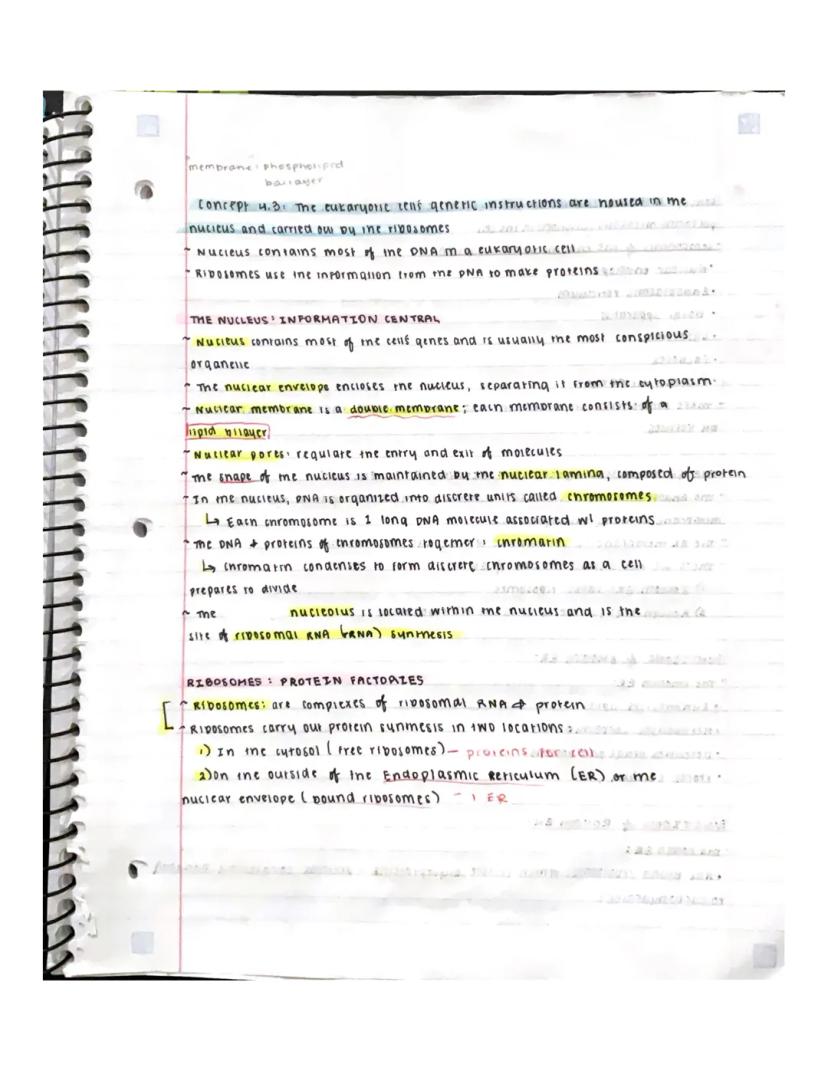 membrane: phospholipid
bailayer
Concept 4.3: The eukaryotic cells genetic instructions are housed in the
nucleus and carried out by the ribosomes
~ Nucleus contains most of the DNA in a eukaryotic cell
~ Ribosomes use the information from the DNA to make proteins
THE NUCLEUS: INFORMATION CENTRAL
~ Nucleus contains most of the cells genes and is usually the most conspicious
organelle
~ The nuclear envelope encloses the nucleus, separating it from the cytoplasm
~ Nuclear membrane is a double membrane; each membrane consists of a
lipid bilayer
~ Nuclear pores: regulate the entry and exit of molecules
~ The shape of the nucleus is maintained by the nuclear lamina, composed of protein
~ In the nucleus, DNA is organized into discrete units called chromosomes
↳ Each chromosome is 1 long DNA molecule associated w/ proteins
~ The DNA + proteins of chromosomes together: chromatin
↳ chromatin condenses to form discrete chromosomes as a cell
prepares to divide
~ The nucleolus is located within the nucleus and is the
site of ribosomal RNA (rRNA) synthesis
RIBOSOMES: PROTEIN FACTORIES
~ Ribosomes: are complexes of ribosomal RNA + protein
~ Ribosomes carry out protein synthesis in two locations:
1) In the cytosol (free ribosomes) — proteins for cell
2) On the outside of the Endoplasmic Reticulum (ER) or the
nuclear envelope (bound ribosomes) - ER